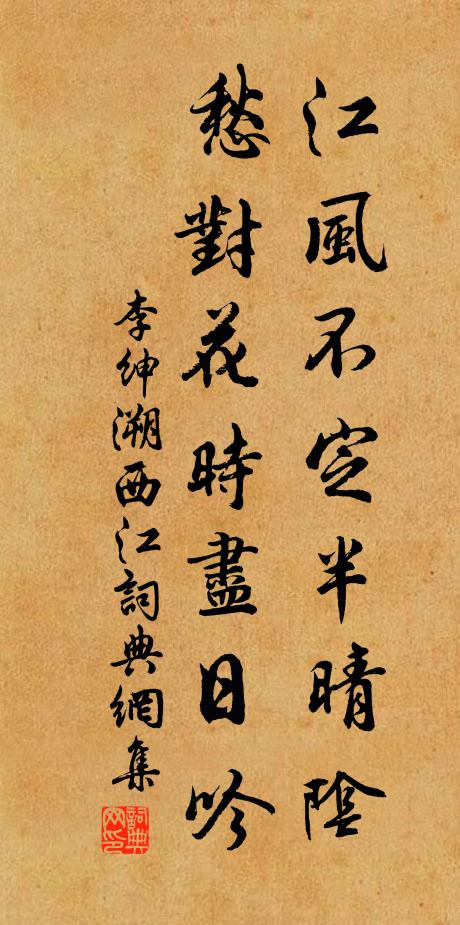 江風不定半晴陰
愁對花時盡日吟
李紳溯西江詞典網集
詞典网印